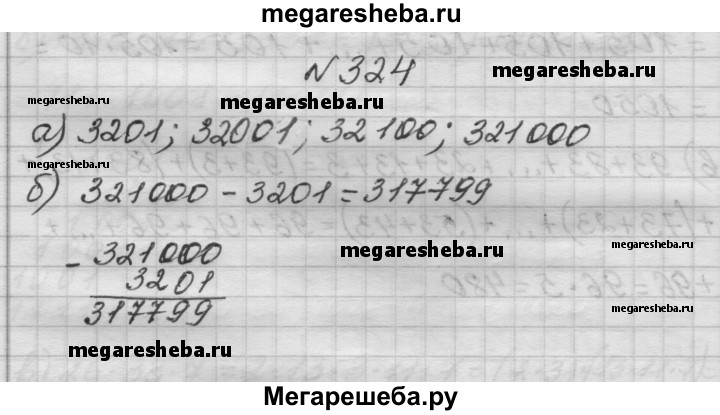 megaresheba.ru
№324
megaresheba.ru
megaresheba.ru
megaresheba.ru
а) 3201; 32001; 32100; 321000
megaresheba.ru
б) 321000 - 3201 = 317799
- 321000
megaresheba.ru
megaresheba.ru
3201
317799
megaresheba.ru
megaresheba.ru
Мегарешеба.ру